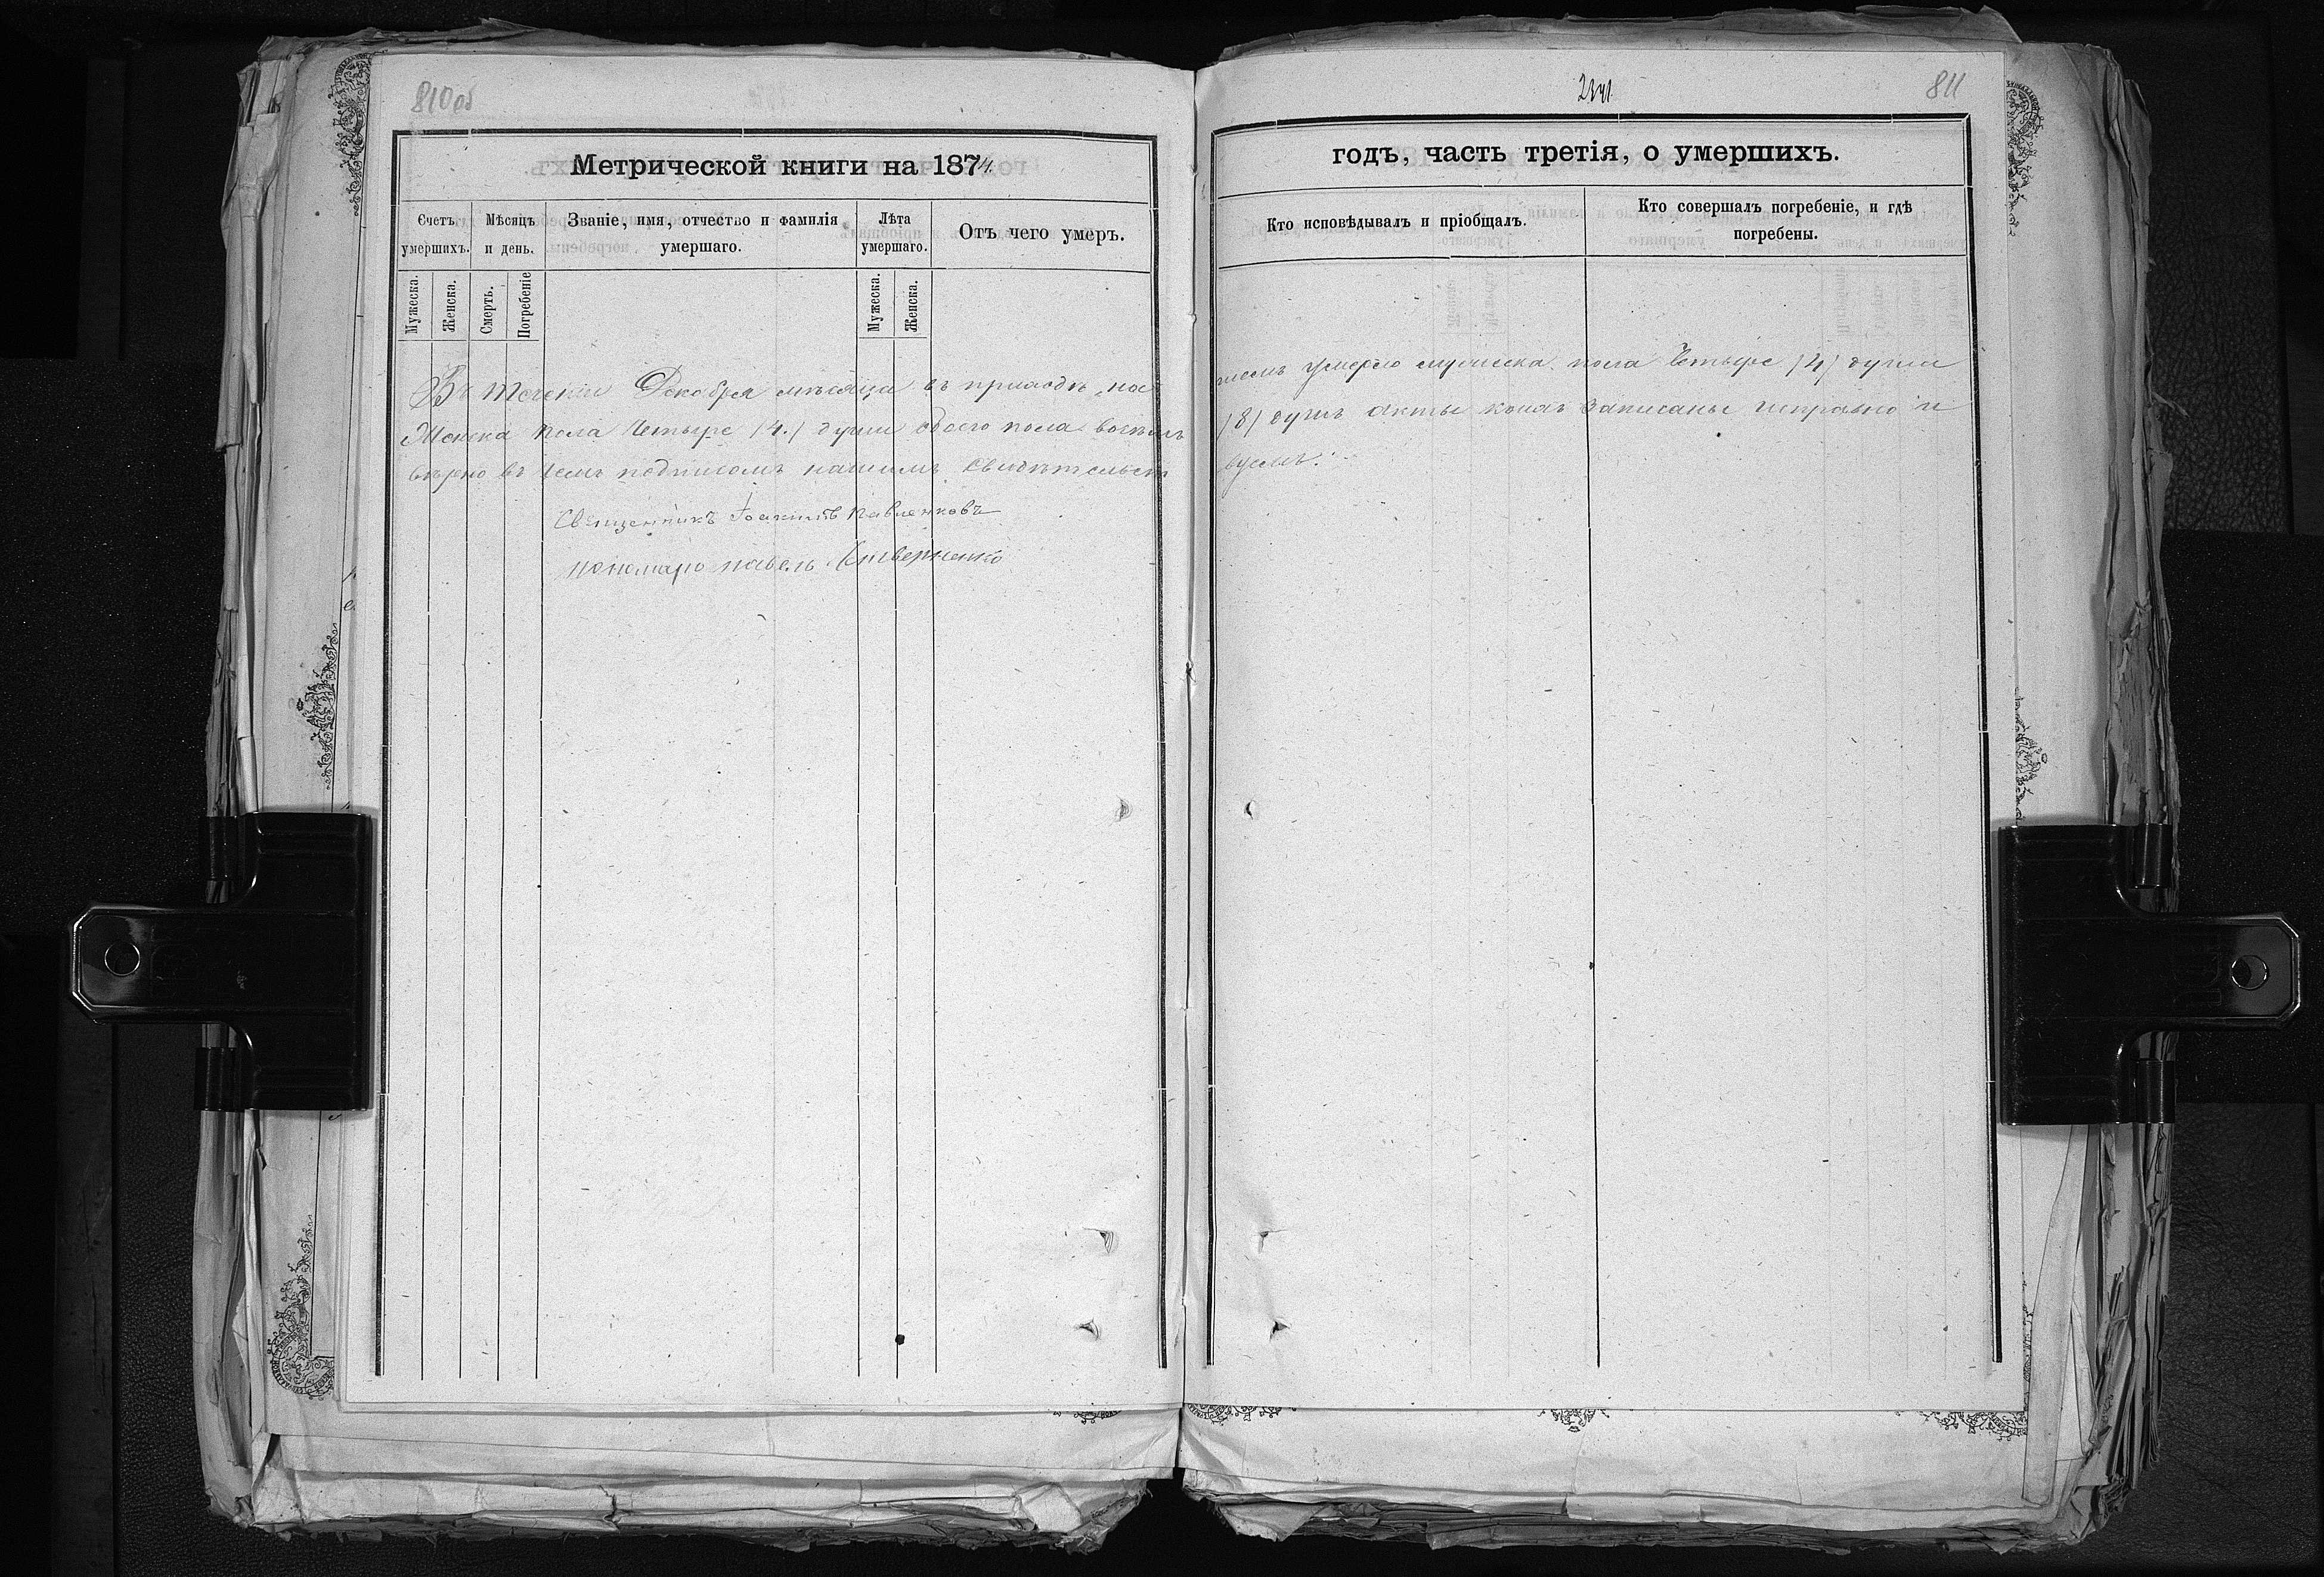 810об
Метрической книги на 1874
Счетъ умершихъ.
Мѣсяцъ и день.
Званіе, имя, отчество и фамилія умершаго.
Лѣта умершаго.
Отъ чего умеръ.
Мужеска.
Женска.
Смерть.
Погребеніе
Мужеска.
Женска.
Въ теченіи Декабря мѣсяца въ приходѣ
Женска пола четыре (4.) души обоего пола восемь
вѣрно въ чемъ подписомъ нашимъ свидѣтельст
Священникъ Іоакимъ Павленковъ
пономарь павелъ
811
годъ, часть третія, о умершихъ.
Кто исповѣдывалъ и пріобщалъ.
Кто совершалъ погребеніе, и гдѣ погребены.
умерло мужеска пола четыре (4) души
(8) душъ акты коихъ записаны исправно и
вуемъ.